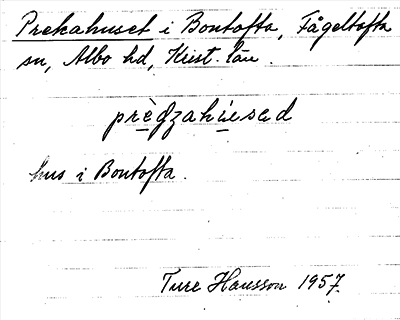 Prekahuset i Bontofta, Fågeltofta
sn, Albo hd, Krist. län.
prègzahúsəd
hus i Bontofta.
Ture Hansson 1957.